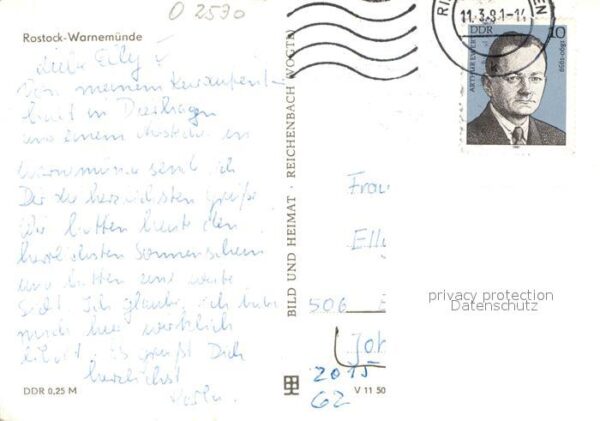 O 2530
Rostock-Warnemünde
Liebe Elly!
Von meinem Kuraufent-
halt in Dierhagen
und einem Abstecher in
Warnemünde send ich
Dir die herzlichsten Grüße
Wir hatten heute den
herrlichsten Sonnenschein
und hatten eine weite
Sicht. Ich glaube, ich habe
mich hier wirklich
erholt. Es grüßt Dich
herzlichst
DDR 0,25 M
BILD UND HEIMAT · REICHENBACH (VOGTL)
11.3.81-14
DDR
10
ARTHUR EWERT
1890-1959
1981
Frau
Elly
506
privacy protection
Datenschutz
Joh
2015
62
V 11 50